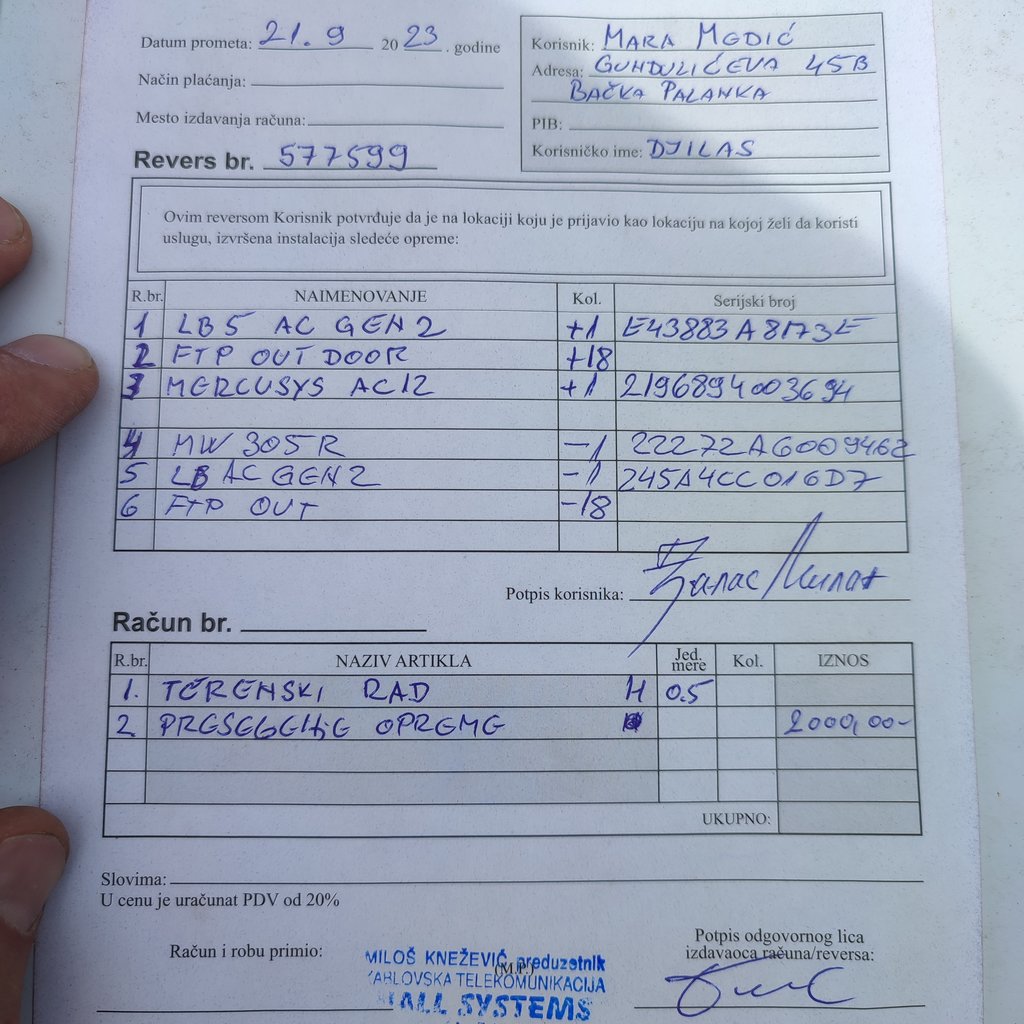 Datum prometa: 21.9 2023. godine
Način plaćanja:
Mesto izdavanja računa:
Revers br. 577599
Korisnik: MARA MEDIĆ
Adresa: GUNDULIĆEVA 45B
BAČKA PALANKA
PIB:
Korisničko ime: DJILAS
Ovim reversom Korisnik potvrđuje da je na lokaciji koju je prijavio kao lokaciju na kojoj želi da koristi
uslugu, izvršena instalacija sledeće opreme:
R.br. NAIMENOVANJE Kol. Serijski broj
1 LB5 AC GEN2 +1 E43883A8173E
2 FTP OUTDOOR +18
3 MERCUSYS AC12 +1 2196894003694
4 MW 305R -1 22272A6009462
5 LB AC GEN2 -1 245A4CC016D7
6 FTP OUT -18
Potpis korisnika:
Račun br.
R.br. NAZIV ARTIKLA Jed. mere Kol. IZNOS
1. TERENSKI RAD H 0.5
2. PRESEЂENJE OPREME 2000,00-
UKUPNO:
Slovima:
U cenu je uračunat PDV od 20%
Račun i robu primio:
MILOŠ KNEŽEVIĆ preduzetnik
(M.P.)
KABLOVSKA TELEKOMUNIKACIJA
ALL SYSTEMS
Potpis odgovornog lica
izdavaoca računa/reversa: